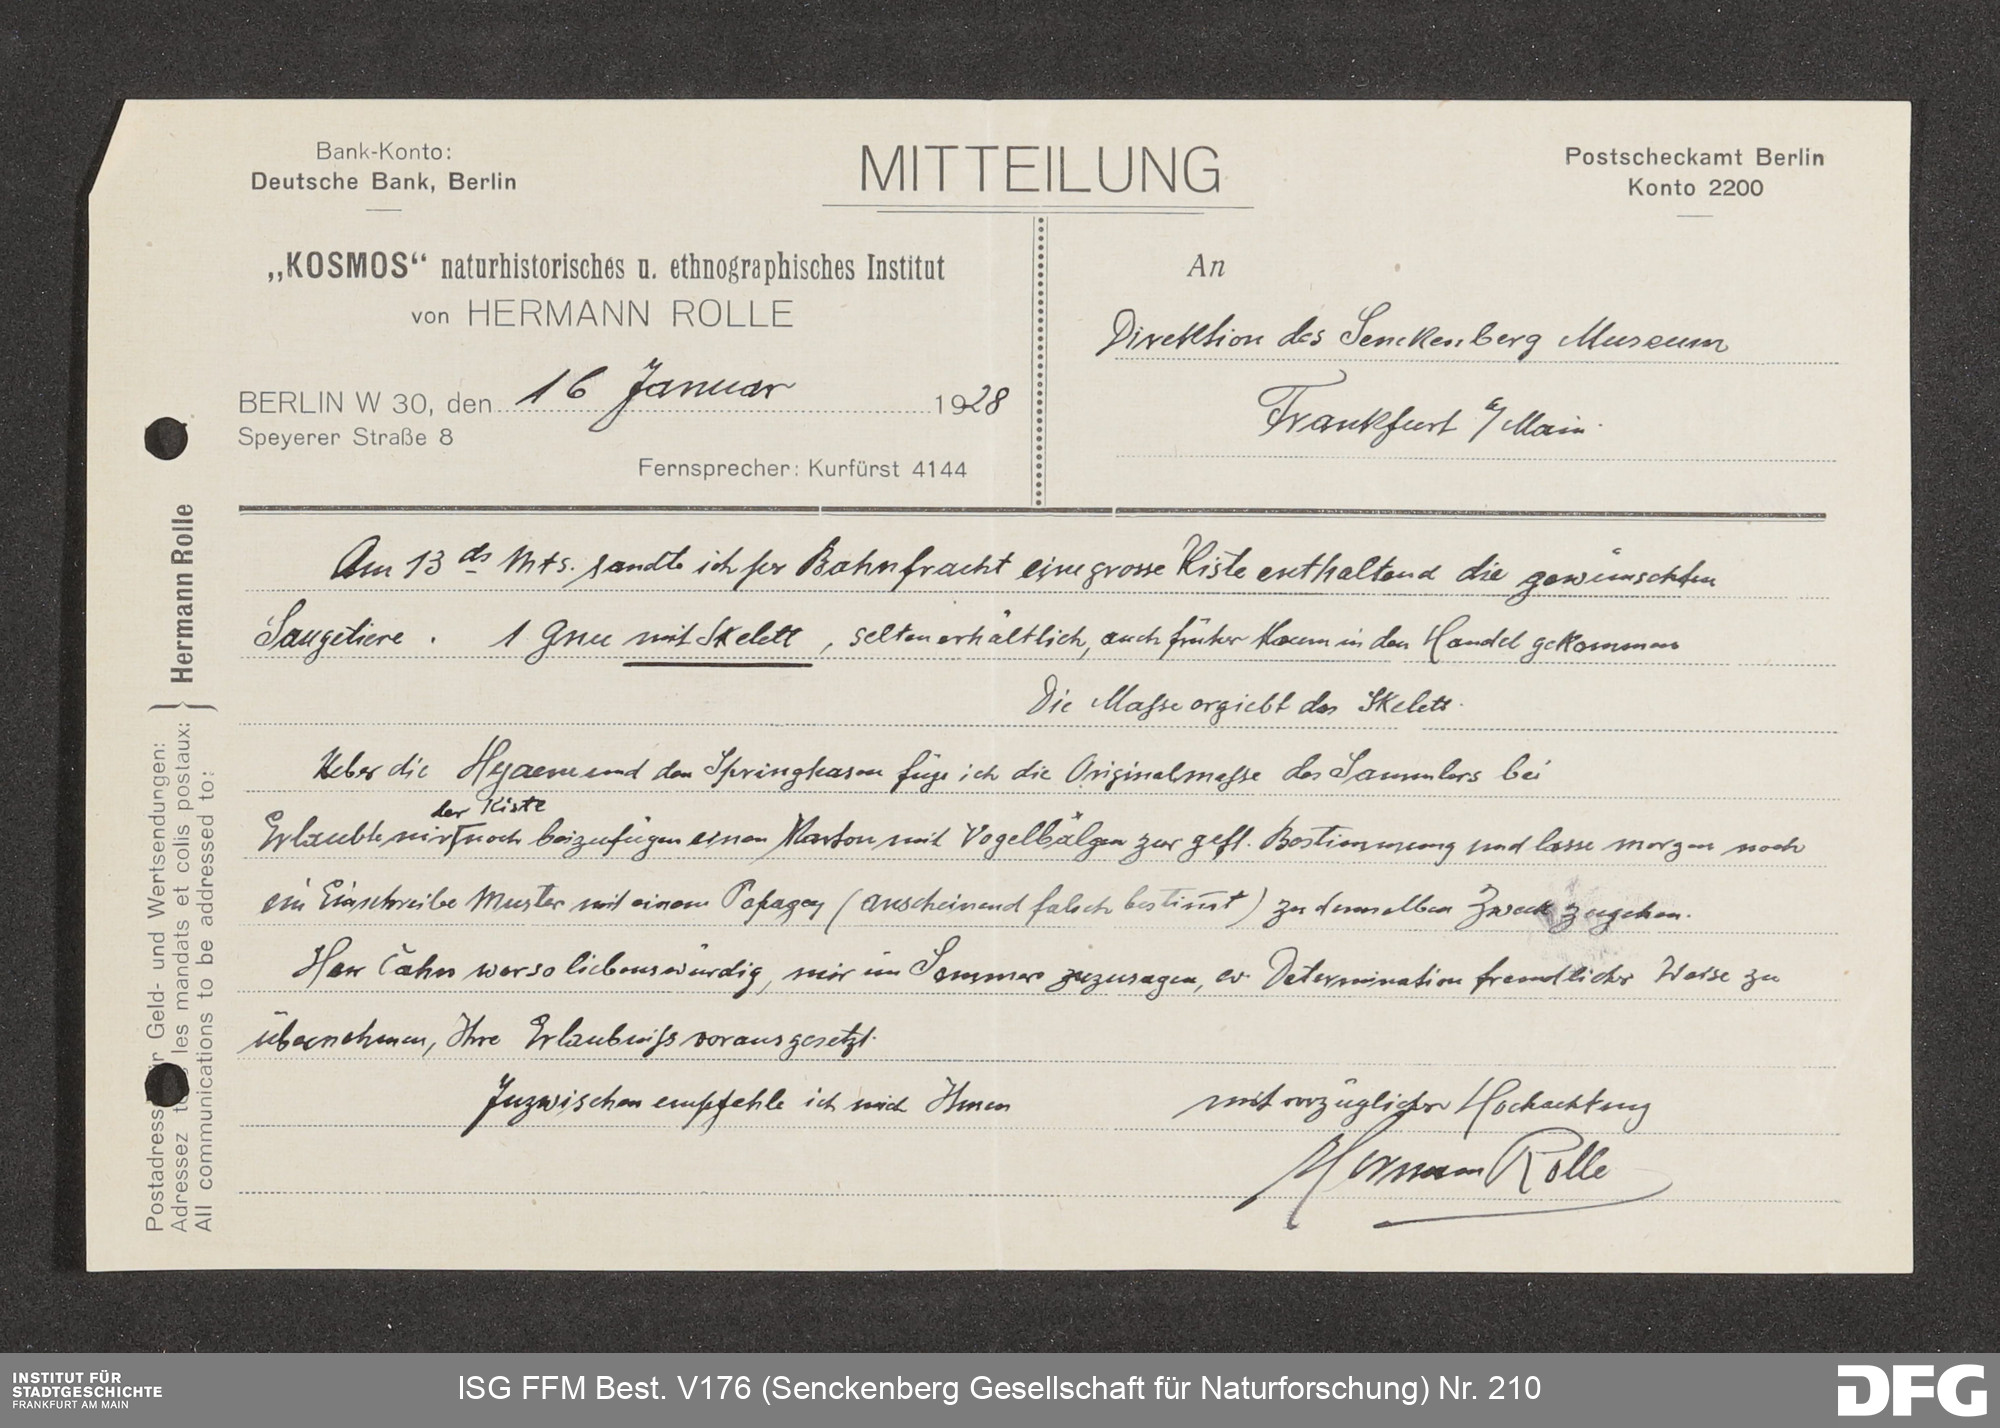 Bank-Konto:
Deutsche Bank, Berlin
MITTEILUNG
Postscheckamt Berlin
Konto 2200
„KOSMOS“ naturhistorisches u. ethnographisches Institut
von HERMANN ROLLE
BERLIN W 30, den 16 Januar 1928
Speyerer Straße 8
Fernsprecher: Kurfürst 4144
An
Direktion des Senckenberg Museum
Frankfurt a/Main.
Am 13 ds Mts. sandte ich per Bahnfracht eine grosse Kiste enthaltend die gewünschten
Säugetiere. 1 Gnu mit Skelett, selten erhältlich, auch früher kaum in den Handel gekommen
Die Masse ergiebt das Skelett.
Ueber die Hyaene und den Springhasen füge ich die Originalmasse des Sammlers bei
der Kiste
Erlaubte mir noch beizufügen einen Karton mit Vogelbälgen zur gefl. Bestimmung und lasse morgen noch
ein Einschreibe Muster mit einem Papagey (anscheinend falsch bestimt) zu demselben Zweck zugehen.
Herr Cahn war so liebenswürdig, mir im Sommer zuzusagen, ev. Determination freundlicher Weise zu
übernehmen, Ihre Erlaubniss vorausgesetzt.
Inzwischen empfehle ich mich Ihnen
mit vorzüglicher Hochachtung
Hermann Rolle
Postadresse für Geld- und Wertsendungen:
Adressez tous les mandats et colis postaux:
All communications to be addressed to:
Hermann Rolle
INSTITUT FÜR
STADTGESCHICHTE
FRANKFURT AM MAIN
ISG FFM Best. V176 (Senckenberg Gesellschaft für Naturforschung) Nr. 210
DFG